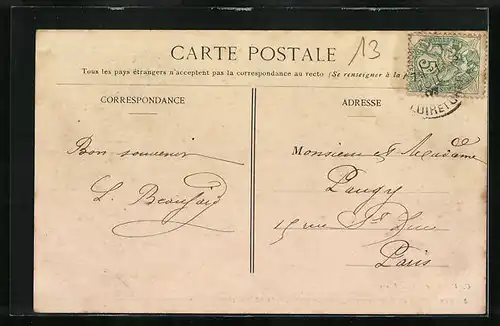 13
CARTE POSTALE
Tous les pays étrangers n'acceptent pas la correspondance au recto (Se renseigner à la
CORRESPONDANCE
ADRESSE
5
Bon souvenir
Monsieur et Madame
15 rue St
Paris